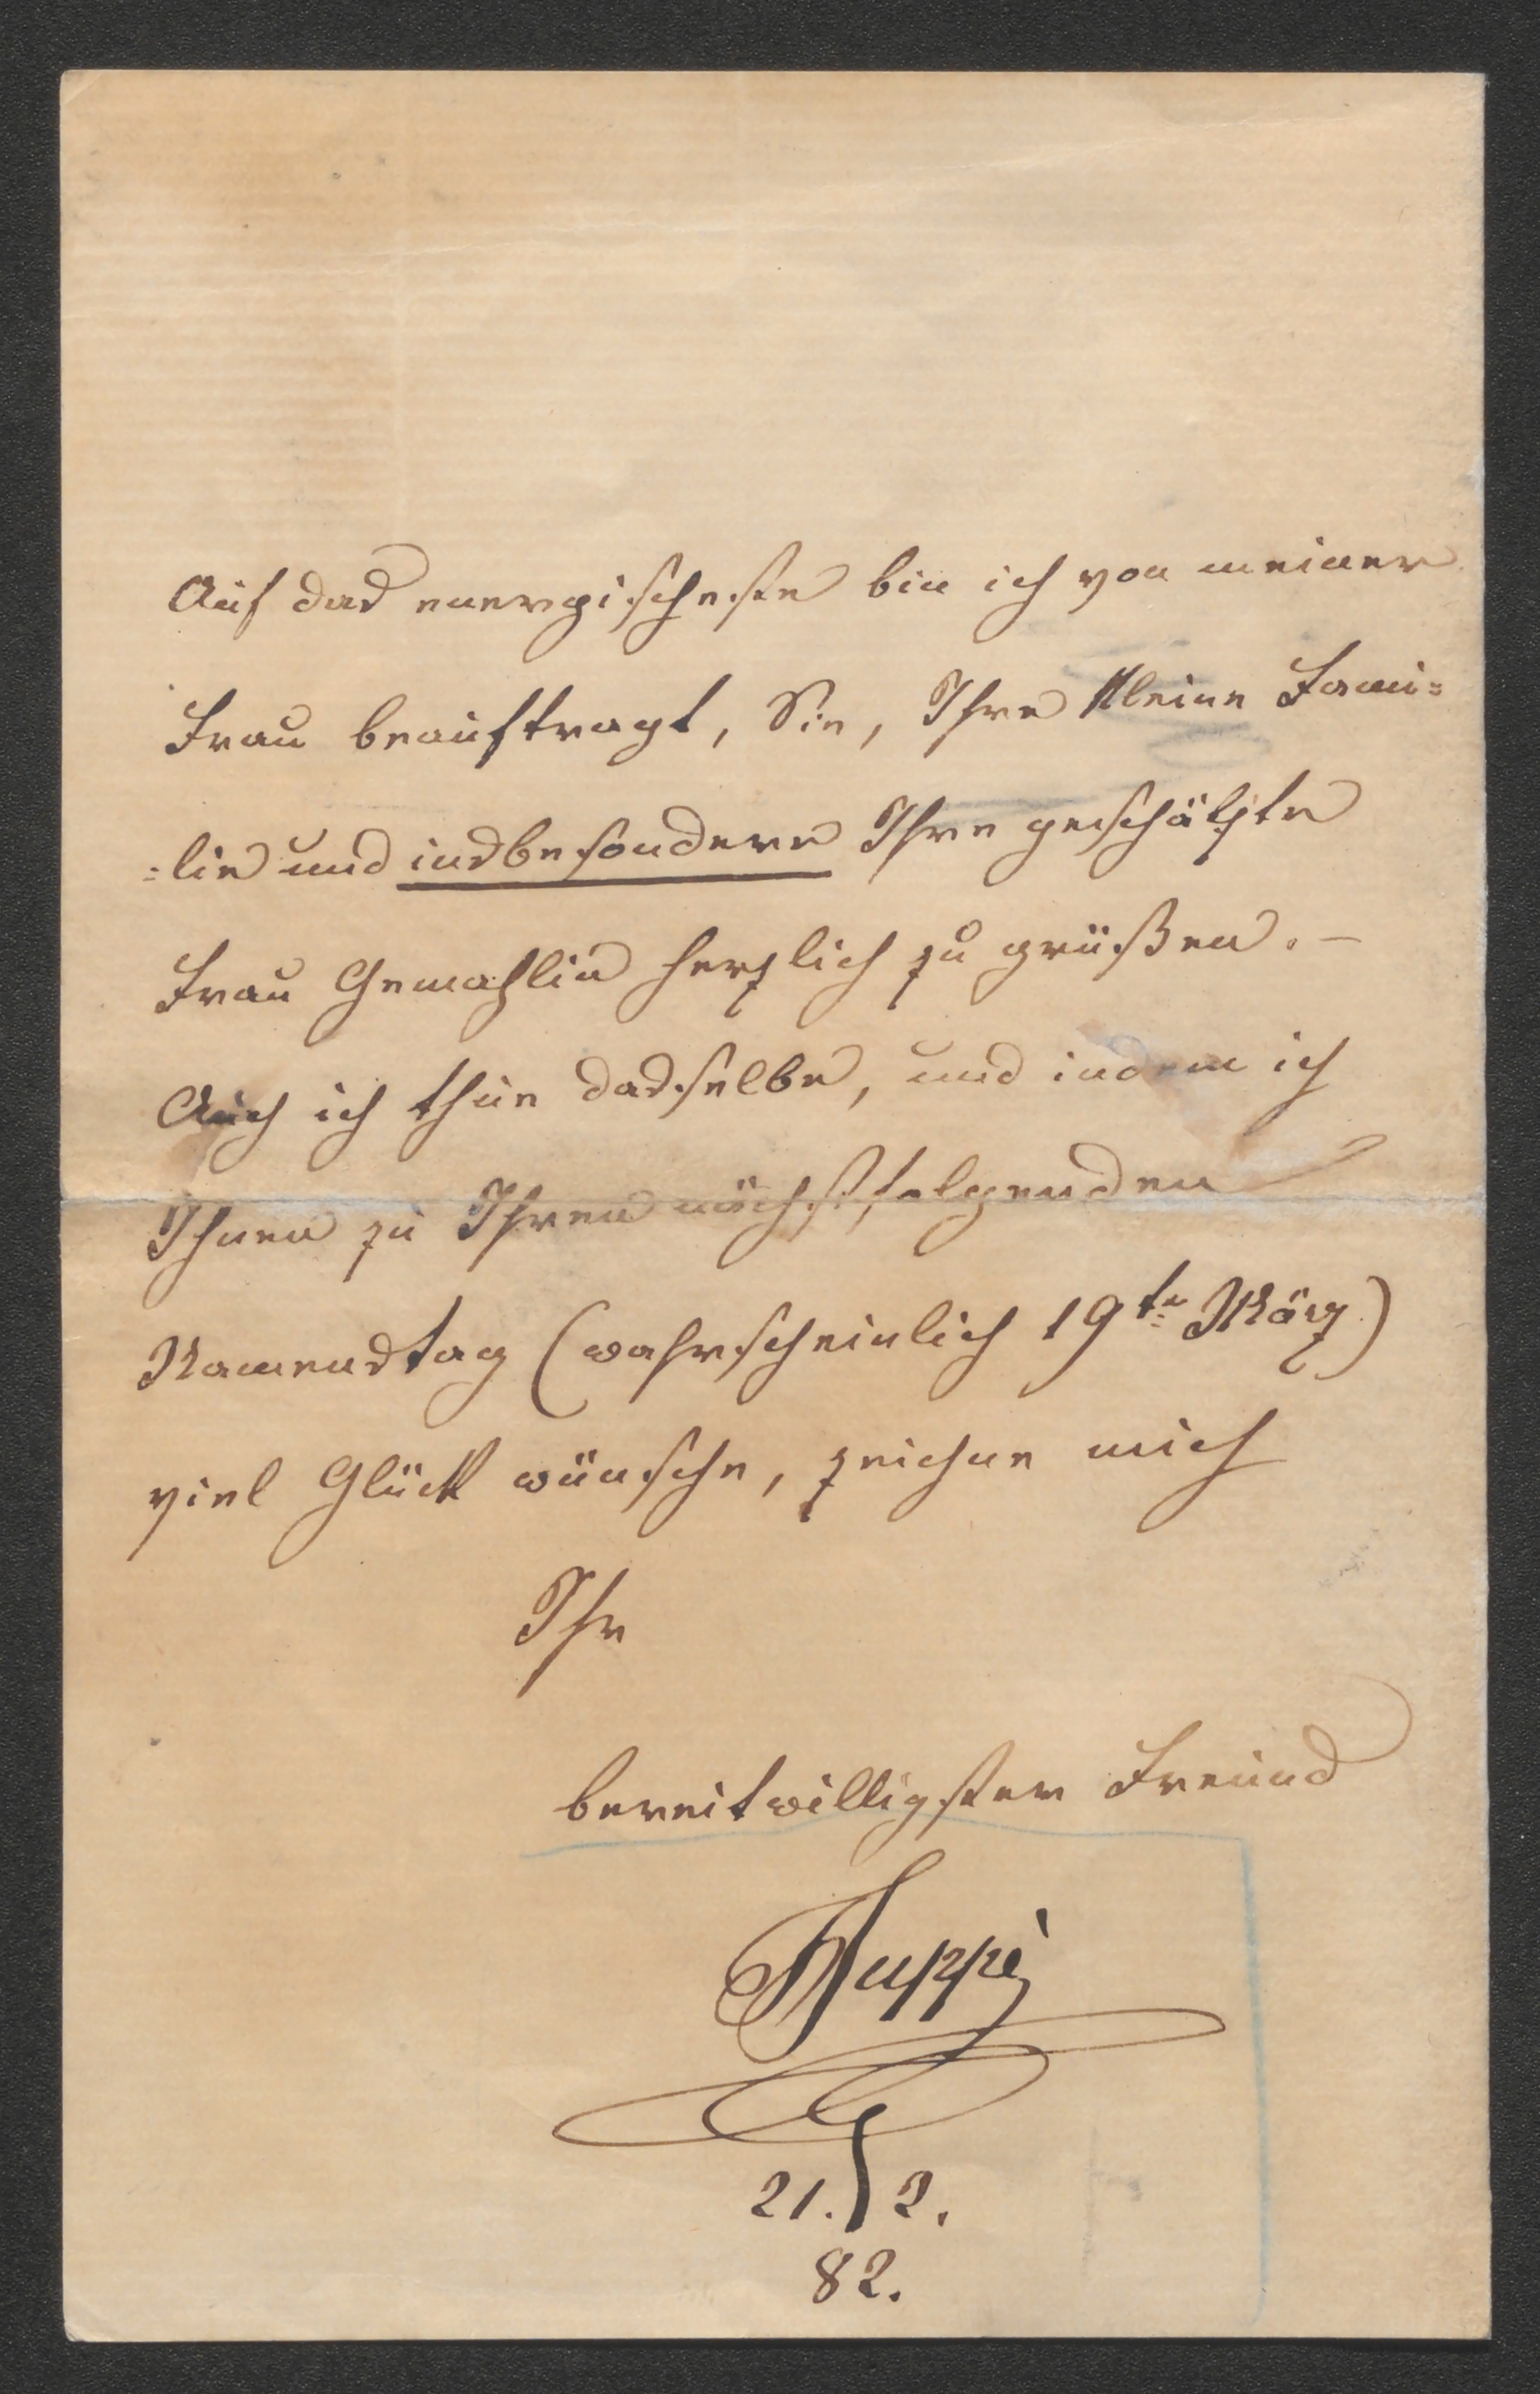 Auf das energischeste bin ich von meiner
Frau beauftragt, Sie, Ihre kleine Fami=
=lie und insbesondere Ihre geschätzte
Frau Gemahlin herzlich zu grüßen. –
Auch ich thue dasselbe, und indem ich
Ihnen zu Ihren nächstfolgenden
Namenstag (wahrscheinlich 19te März)
viel Glück wünsche, zeichne mich
Ihr
bereitwilligster Freund
Suppè
21. 2.
82.